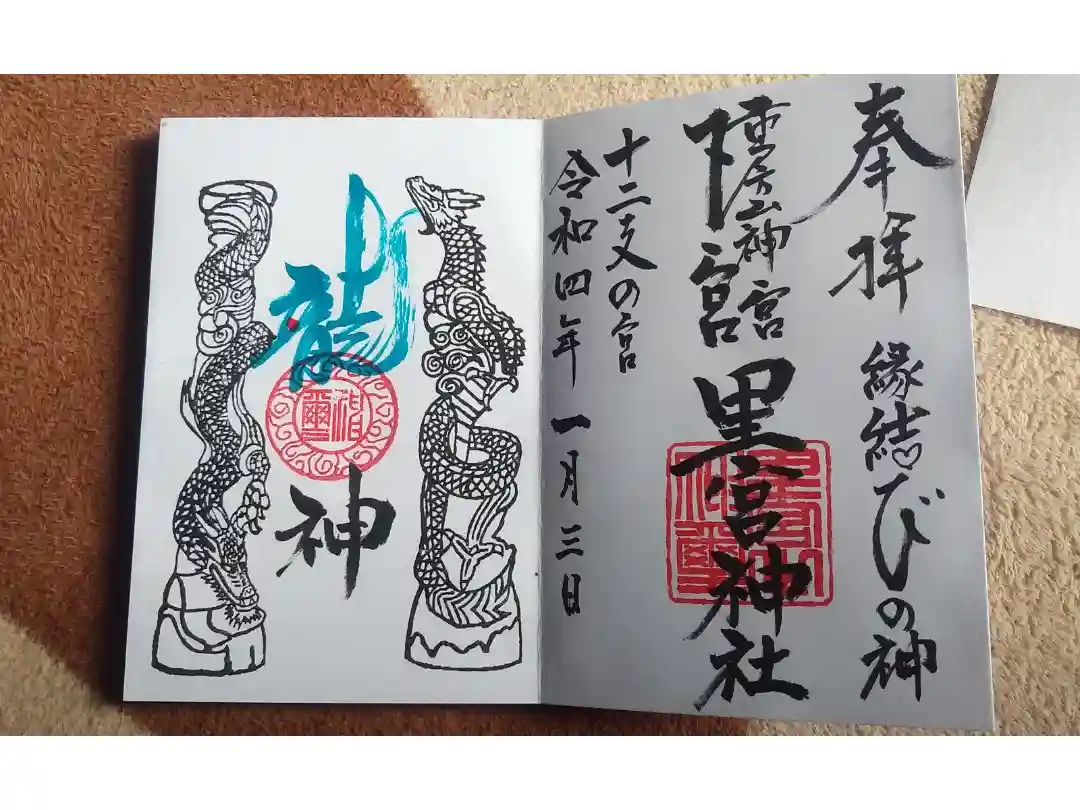 奉拝 縁結びの神
山神宮
宮 里宮神社
十二支の宮
令和四年 一月三日
龍神